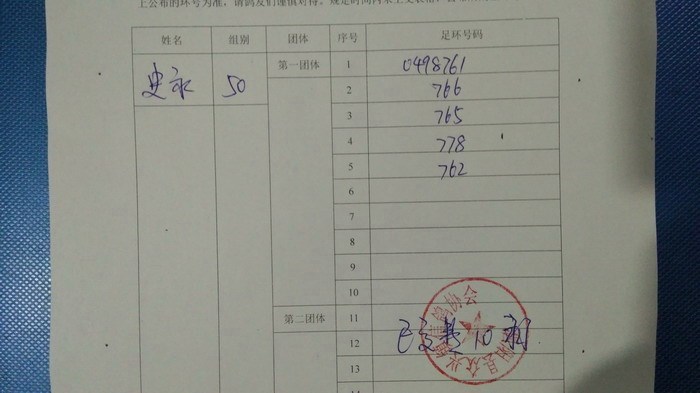 上公布的环号为准，请鸽友们谨慎对待。规定时间内未上交表格，
姓名 组别 团体 序号 足环号码
史永 50 第一团体 1 0498761
2 766
3 765
4 778
5 762
6
7
8
9
10
第二团体 11
12 已交费10羽
13
14